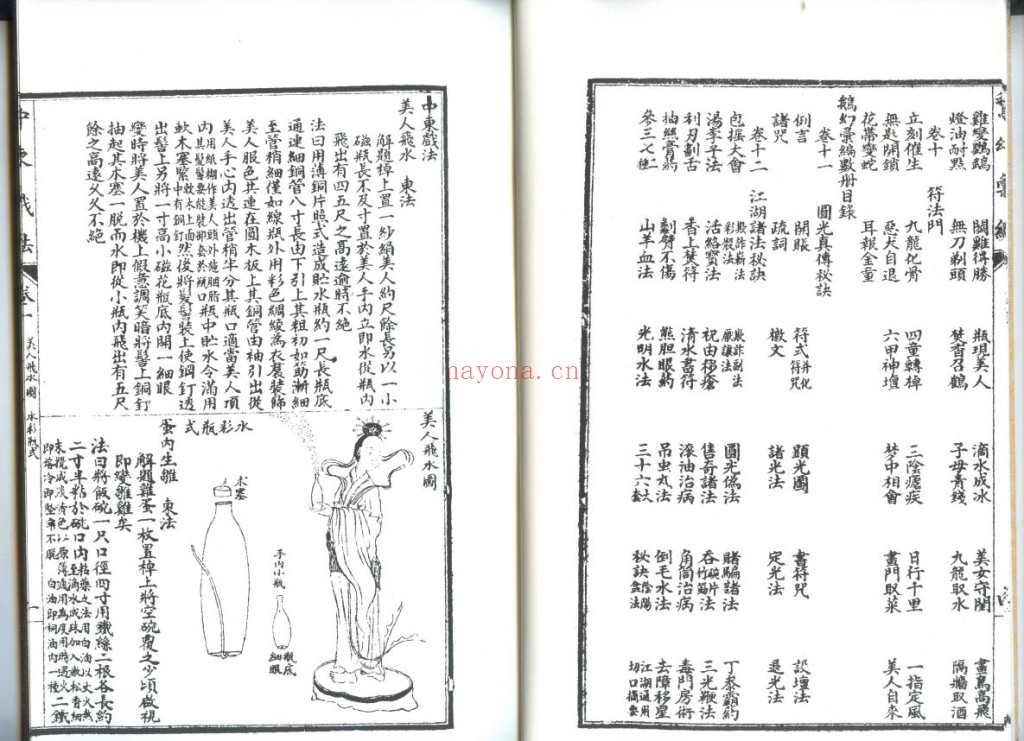 雞變鸚鵡 鬪雞得勝 瓶現美人 滴水成冰 美女守閨 畫鳥高飛
燈油耐點 無刀剃頭 焚召鶴 子母青錢 九龍取水 隔牆取酒
卷十 符法門
立刻催生 九龍化骨 四童轉棹 三陰瘧疾 日行千里 一指定風
無匙開鎖 惡犬自退 六甲神壇 梦中相會 畫門取菜 美人自來
花蒂變蛇 耳報金童
鵝幻彙編數册目錄
卷十一 圓光真傳秘訣
例言 開賬 符式并化符咒 顕光圖 畫符咒 設壇法
諸咒 疏詞 檄文 諸光法 定光法 退光法
卷十二 江湖諸法秘訣
包摸大會 欺詐新法 彩戲法 欺詐副法 圓光偽法 賭騙諸法 丁泰霸药
湯李子法 活絡寶法 祝由移瘡 售奇諸法 吞竹鯽法 三光鞭法
利刃割舌 香上焚符 清水畫符 滚油治病 角筒治病 毒門房術
抽絲膏药 劃臂不傷 熊胆眼药 吊虫丸法 倒毛水法 去障移星
參三七種 山羊血法 光明水法 三十六本 秘訣陰陽盆法 江湖通用切口摘要
中東戲法
美人飛水 東法
解題棹上置一紗絹美人約尺餘長另以一小
磁瓶長不及寸置於美人手内立即水從瓶内
飛出有四五尺之高遠逾時不絶
法曰用薄銅片照式造成貯水瓶約一尺長瓶底
通連細銅管八寸長由下引上其粗初如筯漸細
至管稍細僅如線瓶外用彩色綢綾為衣裝飾
美人服色共連在圓木板上其銅管由袖引出從
美人手心内透出管稍半分其瓶口適當美人項
内用紙糊作美人頭外施胭脂瓶中貯水令滿用
其髮髻要能裝卸套於瓶口
軟木塞緊中有銅釘然後將髮髻裝上使銅釘透
出髻上另將一寸高小磁花瓶底内開一細眼
變時將美人置於機上假意調笑暗將髻上銅釘
抽起其木塞一脱而水即從小瓶内飛出有五尺
餘之高遠久久不絶
美人飛水圖
水彩瓶式
木塞
手内小瓶
瓶底細眼
蛋内生雛 東法
解題雞蛋一枚置棹上將空碗覆之少頃啟視
即變雛雞矣
法曰將飯碗一只口徑四寸用鐵絲二根各長約
二寸半粘於碗口内
二鐵
中東戲法
卷一
美人飛水圖 水彩瓶式
一
nayona.cn